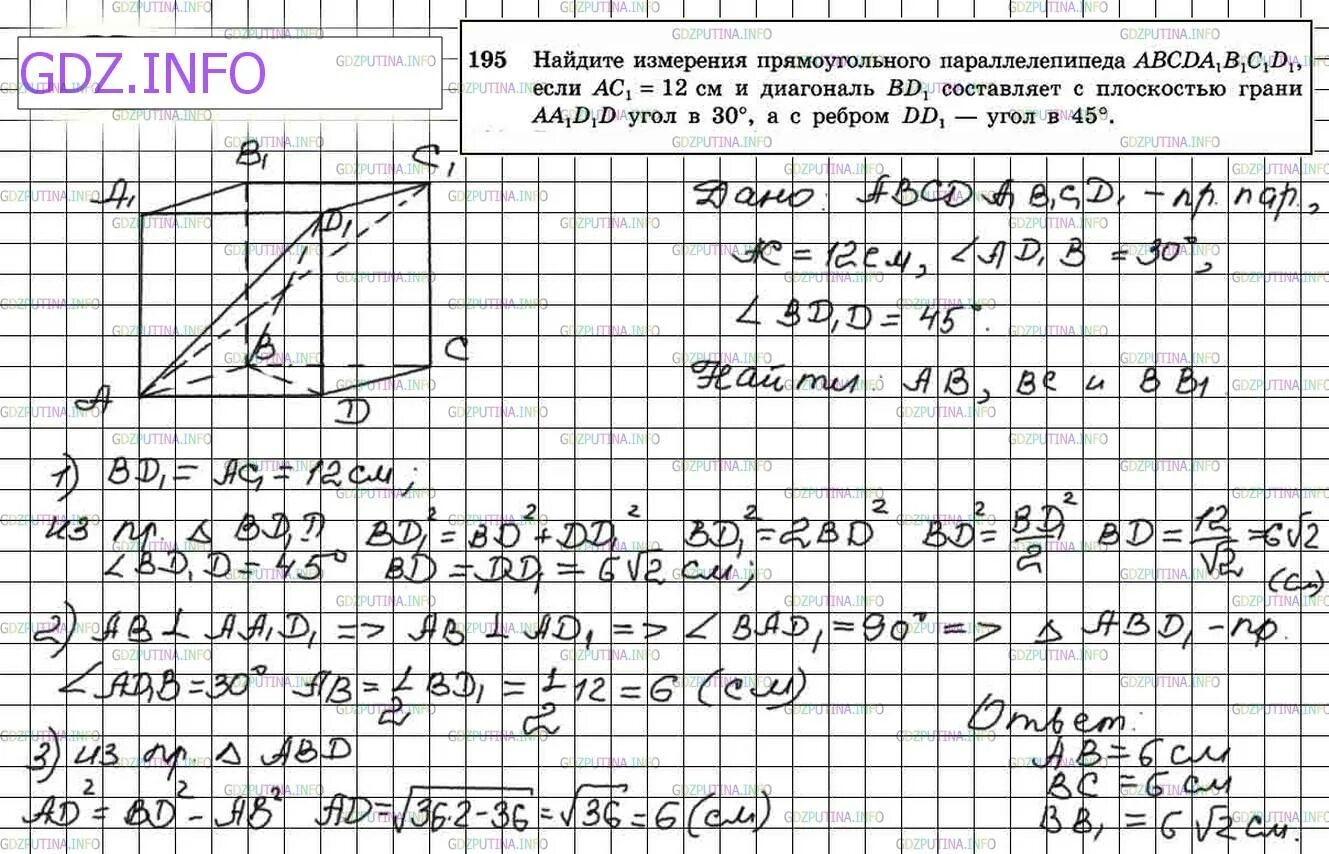 GDZ.INFO
195 Найдите измерения прямоугольного параллелепипеда ABCDA₁B₁C₁D₁,
если AC₁ = 12 см и диагональ BD₁ составляет с плоскостью грани
AA₁D₁D угол в 30°, а с ребром DD₁ — угол в 45°.
B₁
C₁
A₁
D₁
B
C
A
D
Дано: ABCDA₁B₁C₁D₁ – пр. пар.,
AC = 12 см, ∠AD₁B = 30°,
∠BD₁D = 45°.
Найти: AB, BC и BB₁
1) BD₁ = AC₁ = 12 см;
из пр. Δ BD₁D BD₁² = BD² + DD₁² BD₁² = 2BD² BD² = BD₁²/2 BD = 12/√2 = 6√2
∠BD₁D = 45° BD = DD₁ = 6√2 см; (см)
2) AB ⊥ AA₁D₁ => AB ⊥ AD₁ => ∠BAD₁ = 90° => Δ ABD₁ – пр.
∠AD₁B = 30° AB = 1/2 BD₁ = 1/2 12 = 6 (см)
3) из пр. Δ ABD
AD² = BD² - AB² AD = √36·2-36 = √36 = 6 (см)
Ответ:
AB = 6 см
BC = 6 см
BB₁ = 6√2 см.
GDZPUTINA.INFO